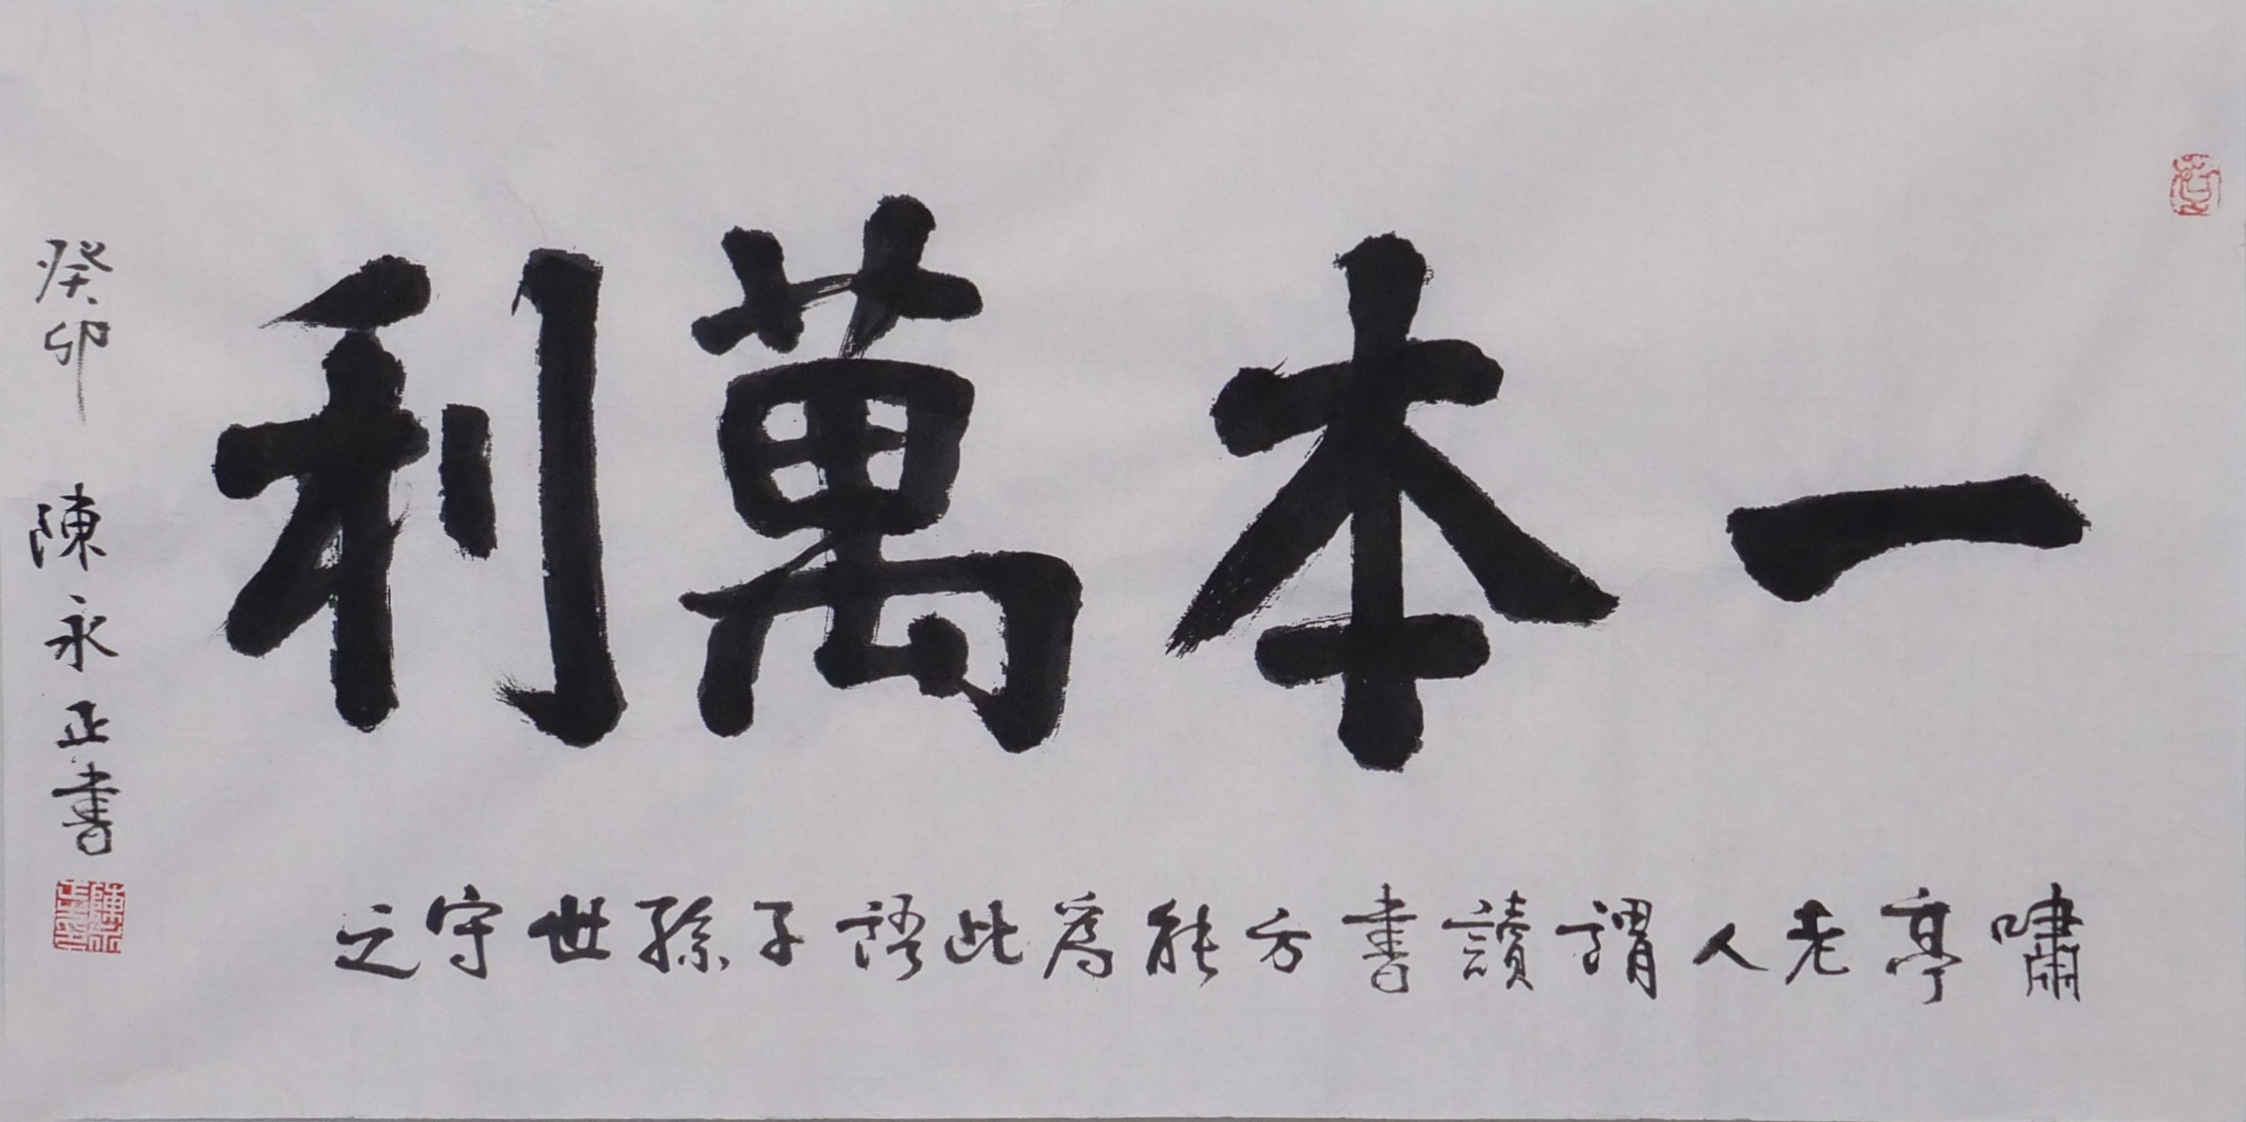 一本萬利
嘯亭老人謂讀書方能為此語子孫世守之
癸卯 陳永正書